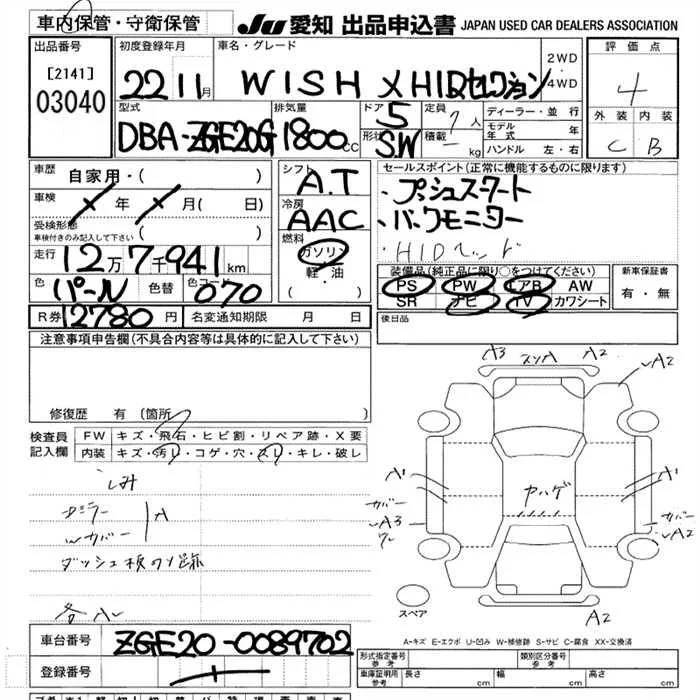 車内保管・守衛保管
JU 愛知 出品申込書 JAPAN USED CAR DEALERS ASSOCIATION
出品番号
[2141]
03040
初度登録年月
22 11月
車名・グレード
WISH X HIDセレクション
2WD・4WD
評価点
4
外装 内装
C B
型式
DBA-ZGE20G
排気量
1800cc
ドア
5
形状
SW
定員
7人
積載
- kg
ディーラー・並行
モデル年式 年
ハンドル 左・右
車歴
自家用・( )
車検
年 月( 日)
受検形態
車検付きのみ記入して下さい ( )
走行
12万7千941km
色
パール
色替
色コード
070
シフト
A.T
冷房
AAC
燃料
ガソリン
軽・油
( )
セールスポイント(正常に機能するものに限ります)
・プッシュスタート
・バックモニター
・HIDヘッド
装備品(純正品に限り○をつけてください)
PS PW エアB AW
SR ナビ TV カワシート
新車保証書
有・無
後日品
R券 12780円
名変通知期限 月 日
注意事項申告欄(不具合内容等は具体的に記入して下さい)
修復歴 有(箇所 )
検査員記入欄
FW キズ・飛石・ヒビ割・リペア跡・X要
内装 キズ・汚レ・コゲ・穴・スレ・キレ・破レ
シミ
Wカバー
A
ダッシュ板のリ跡
A3 スリA A2
A2
A1
カバー
A3
ヤハゲ
A1
カバー
A2
スペア
A2
A-キズ E-エクボ U-凹み W-補修跡 S-サビ C-腐食 XX-交換済
車台番号
ZGE20-0089702
登録番号
形式指定番号
参考
類別区分番号
参考
車庫証明用
参考
長さ cm
幅 cm
高さ cm